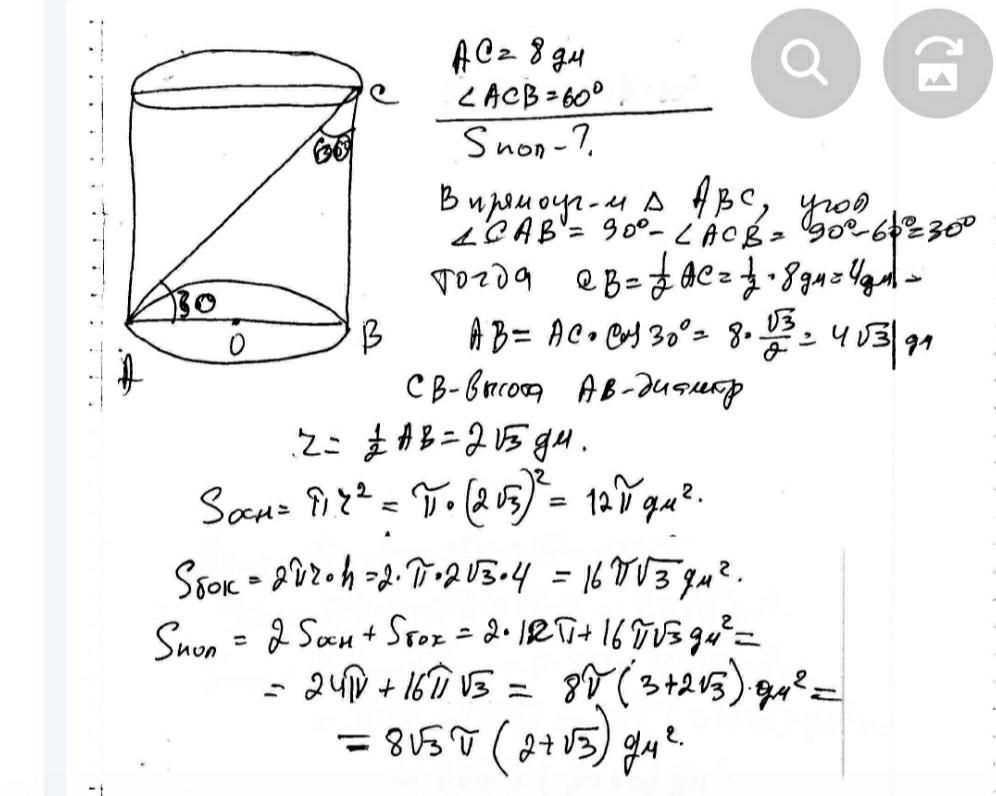 AC = 8 дм
∠ACB = 60°
Sпол - ?
В прямоуг-м Δ ABC, угол
∠CAB = 90° - ∠ACB = 90° - 60° = 30°
тогда CB = 1/2 AC = 1/2 · 8 дм = 4 дм
AB = AC · cos 30° = 8 · √3/2 = 4√3 дм
CB - высота AB - диаметр
r = 1/2 AB = 2√3 дм.
Sосн = πr² = π · (2√3)² = 12π дм².
Sбок = 2πr · h = 2 · π · 2√3 · 4 = 16π√3 дм².
Sпол = 2Sосн + Sбок = 2 · 12π + 16π√3 дм² =
= 24π + 16π√3 = 8π(3 + 2√3) · дм² =
= 8√3π(2 + √3) дм².
C
60°
30
A
O
B